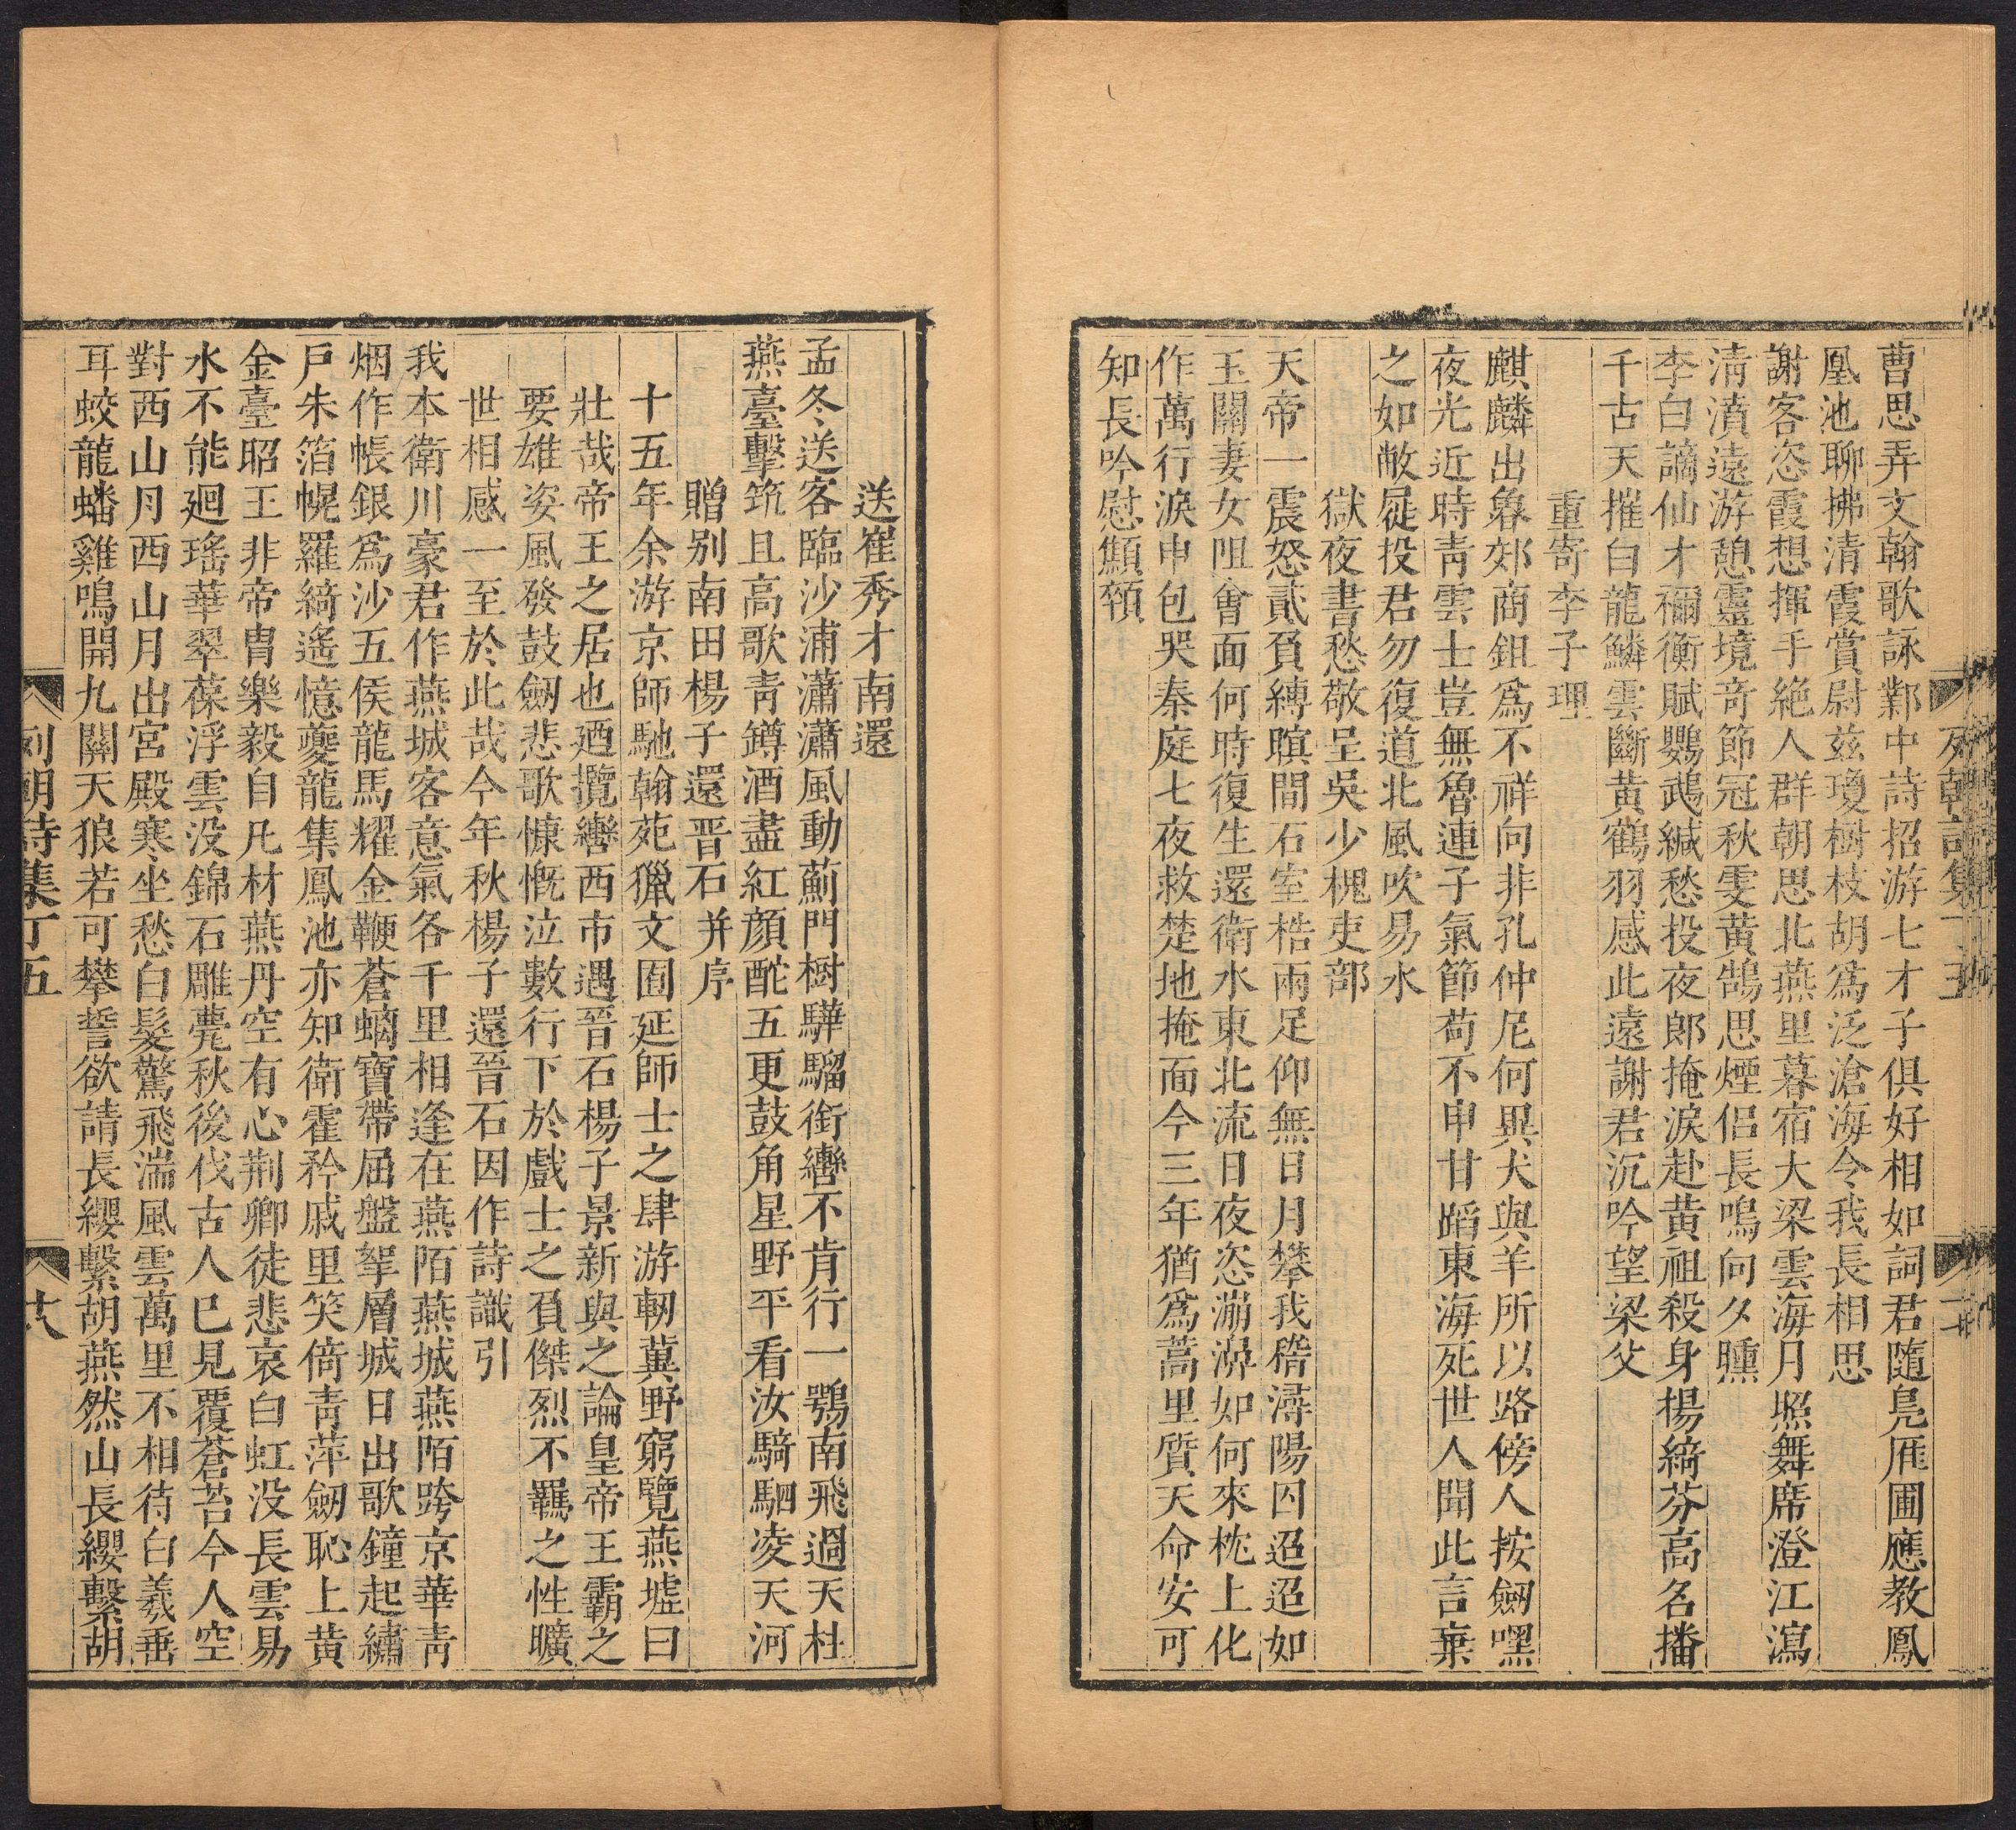 曹思弄文翰歌詠鄴中詩招游七才子俱好相如詞君隨鳧雁圃應教鳳
凰池聊拂清霞賞尉兹瓊樹枝胡爲泛滄海令我長相思
謝客恣霞想揮手絶人群朝思北燕里暮宿大梁雲海月照舞席澄江瀉
清濆遠游憩靈境竒節冠秋雯黄鵠思煙侣長鳴向夕曛
李白謫仙才禰衡賦鸚鵡緘愁投夜郎掩淚赴黄祖殺身揚綺芬高名播
千古天摧白龍鱗雲斷黄鶴羽感此遠謝君沉吟望梁父
重寄李子理
麒麟出魯郊商鉏爲不祥向非孔仲尼何異犬與羊所以路傍人按劒嘿
夜光近時青雲士豈無魯連子氣節苟不申甘蹈東海死世人聞此言棄
之如敝屣投君勿復道北風吹易水
獄夜書愁敬呈吳少槐吏部
天帝一震怒貳負縛瞑間石室梏兩足仰無日月攀我喾潯陽囚迢迢如
玉關妻女咀會面何時復生還衛水東北流日夜恣漰濞如何來枕上化
作萬行淚申包哭秦庭七夜救楚地掩面今三年猶爲蒿里質天命安可
知長吟慰顦顇
送崔秀才南還
孟冬送客臨沙浦瀟瀟風動薊門樹驊騮銜轡不肯行一鶚南飛過天杜
燕臺擊筑且高歌青罇酒盡紅顔酡五更鼓角星野平看汝騎駟凌天河
贈别南田楊子還晋石并序
十五年余游京師馳翰苑獵文囿延師士之肆游軔冀野窮覽燕墟曰
壯哉帝王之居也廼攬轡西市遇晉石楊子景新與之論皇帝王霸之
要雄姿風發鼓劒悲歌慷慨泣數行下於戲士之負傑烈不羈之性曠
世相感一至於此哉今年秋楊子還晉石因作詩識引
我本衛川豪君作燕城客意氣各千里相逢在燕陌燕城燕陌跨京華青
烟作帳銀爲沙五侯龍馬耀金鞭蒼螭寶帶屈盤挐層城日出歌鐘起繡
戸朱箔幌羅綺遙憶夔龍集鳳池亦知衛霍矜戚里笑倚青萍劒恥上黄
金臺昭王非帝胄樂毅自凡材燕丹空有心荆卿徒悲哀白虹没長雲易
水不能廻瑤華翠葆浮雲没錦石雕甍秋後伐古人已見覆蒼苔今人空
對西山月西山月出宮殿寒坐愁白髮驚飛湍風雲萬里不相待白羲垂
耳蛟龍蟠雞鳴開九關天狼若可攀誓欲請長纓繫胡燕然山長纓繫胡
列朝詩集丁五
廿八